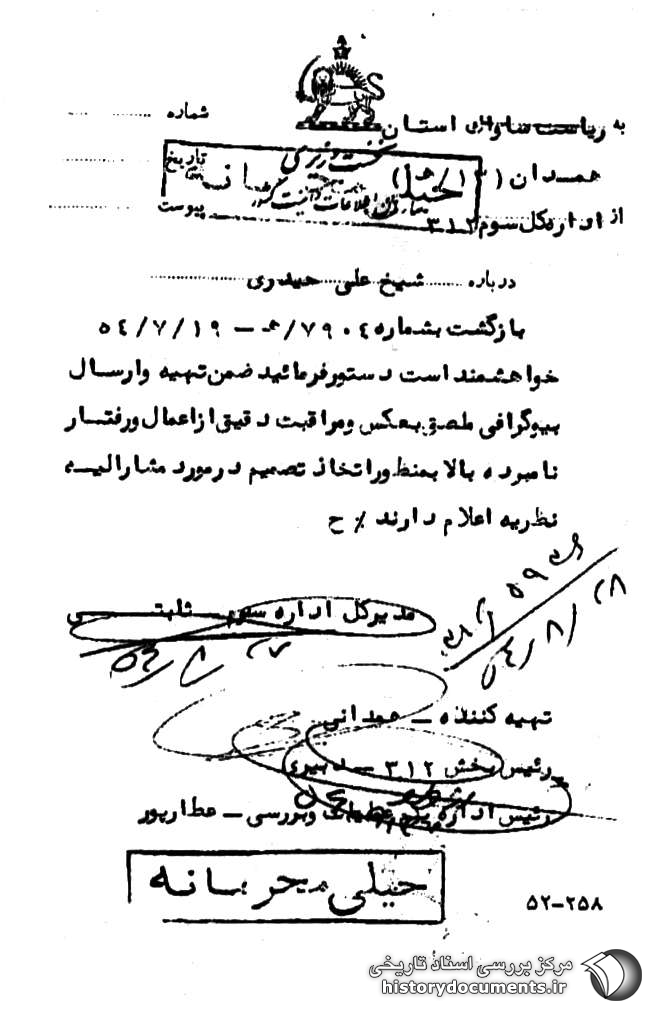 به ریاست ساواک استان شماره
همدان (۱۳/هـ) تاریخ
نخست وزیری
خیلی محرمانه
سازمان اطلاعات و امنیت کشور
از اداره کل سوم ۳۱۲ پیوست
درباره شیخ علی حیدری
بازگشت بشماره ۷۹۰۴/هـ – ۵۴/۷/۱۹
خواهشمند است دستور فرمائید ضمن تهیه و ارسال
بیوگرافی ملصق بعکس و مراقبت دقیق از اعمال و رفتار
نامبرده بالا بمنظور اتخاذ تصمیم در مورد مشارالیه
نظریه اعلام دارند ٪ ح
مدیرکل اداره سوم – ثابتی
۵۴/۸/
تهیه کننده – همدانی
رئیس بخش ۳۱۲ – دبیری
رئیس اداره یکم عملیات و بررسی – عطارپور
خیلی محرمانه
۵۲–۲۵۸
مرکز بررسی اسناد تاریخی
historydocuments.ir